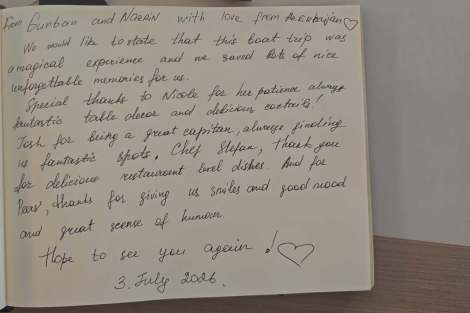 From Gunban and Nazrin with love from Azerbaijan♡
We would like to state that this boat trip was
a magical experience and we saved lots of nice
unforgettable memories for us.
Special thanks to Nicole for her patience, always
fantastic table decor and delicious coctails!
Josh for being a great capitan, always finding
us fantastic spots. Chef Stefan, thank you
for delicious restaurant level dishes. And for
thanks for giving us smiles and good mood
and great scense of humour.
Hope to see you again!♡
3. July 2026.